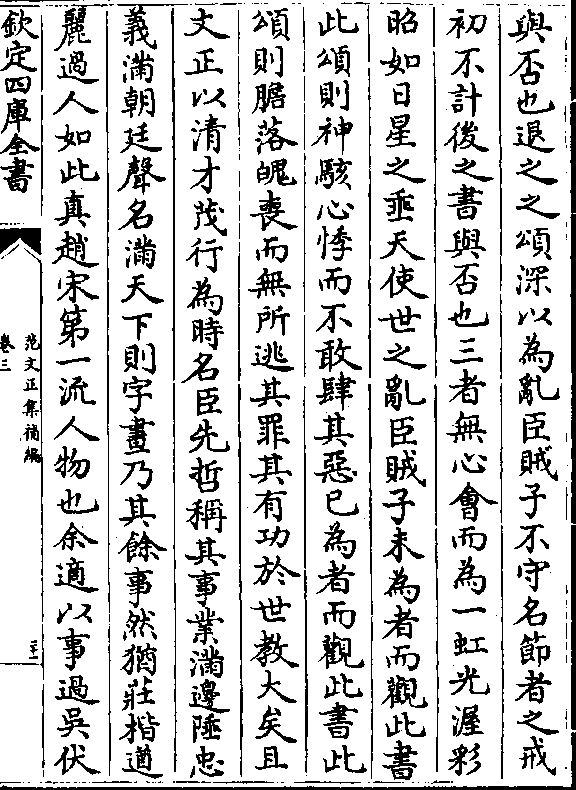 與否也退之之頌深以為亂臣賊子不守名節者之戒
初不計後之書與否也三者無心會而為一虹光渥彩
昭如日星之垂天使世之亂臣賊子未為者而觀此書
此頌則神駭心悸而不敢肆其惡已為者而觀此書此
頌則膽落魄喪而無所逃其罪其有功於世教大矣且
文正以清才茂行為時名臣先哲稱其事業滿邊陲忠
義滿朝廷聲名滿天下則字畫乃其餘事然猶莊楷遒
麗過人如此真趙宋第一流人物也余適以事過吳伏
欽定四庫全書
范文正集補編
卷三
二十一